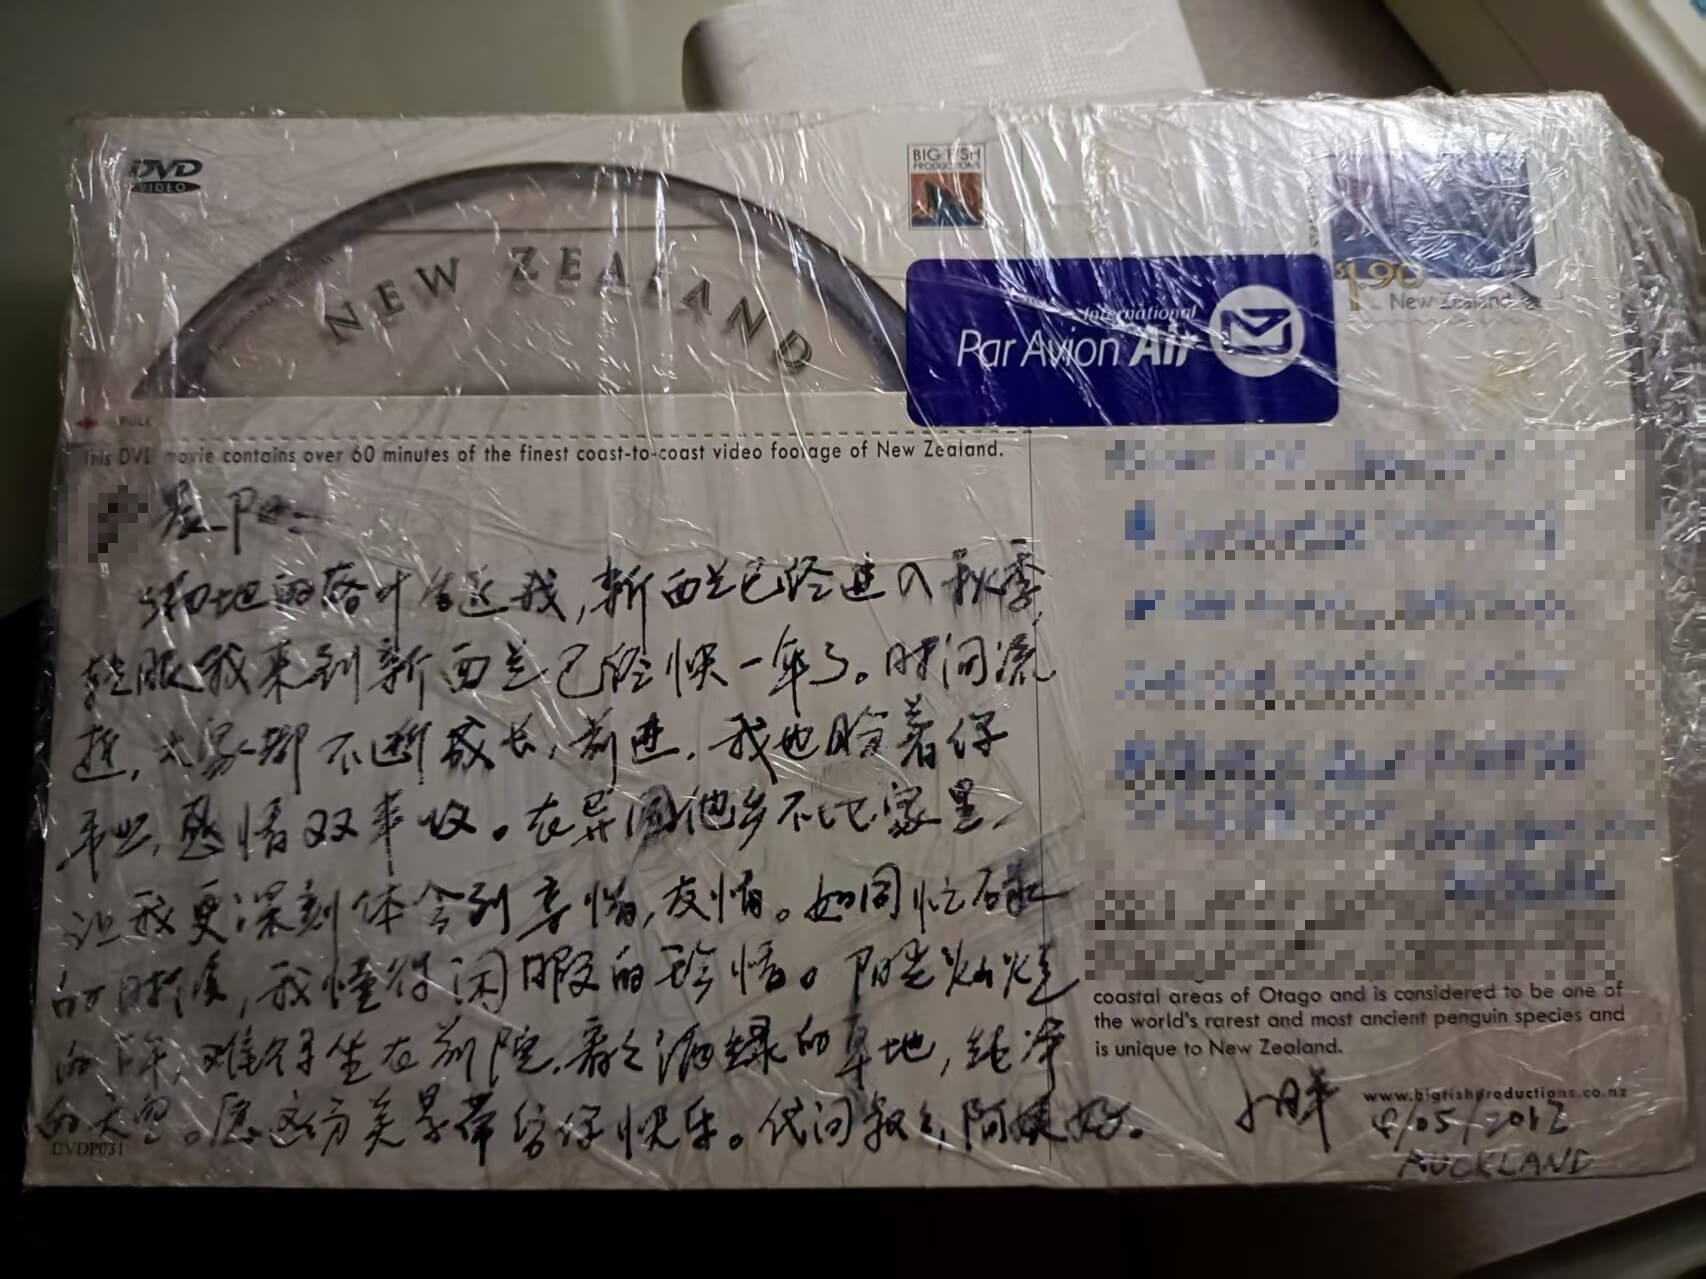 DVD
VIDEO
NEW ZEALAND
BIG FISH
PRODUCTIONS
International
Par Avion Air
$1.90
New Zealand
This DVD movie contains over 60 minutes of the finest coast-to-coast video footage of New Zealand.
满地的落叶告诉我,新西兰已经进入秋季,
我来到新西兰已经快一年了。时间流
逝,大家都不断成长,前进,我也盼着你
事业,感情双丰收。在异国他乡不比家里,
让我更深刻体会到亲情,友情。如同忙碌
的时候,我懂得闲暇的珍惜。阳光灿烂
的下午,难得坐在前院,看着满绿的草地,纯净
的天空。愿这份美景带给你快乐。代问叔叔,阿姨好。
DVDP031
coastal areas of Otago and is considered to be one of
the world's rarest and most ancient penguin species and
is unique to New Zealand.
www.bigfishproductions.co.nz
/05/2012
AUCKLAND